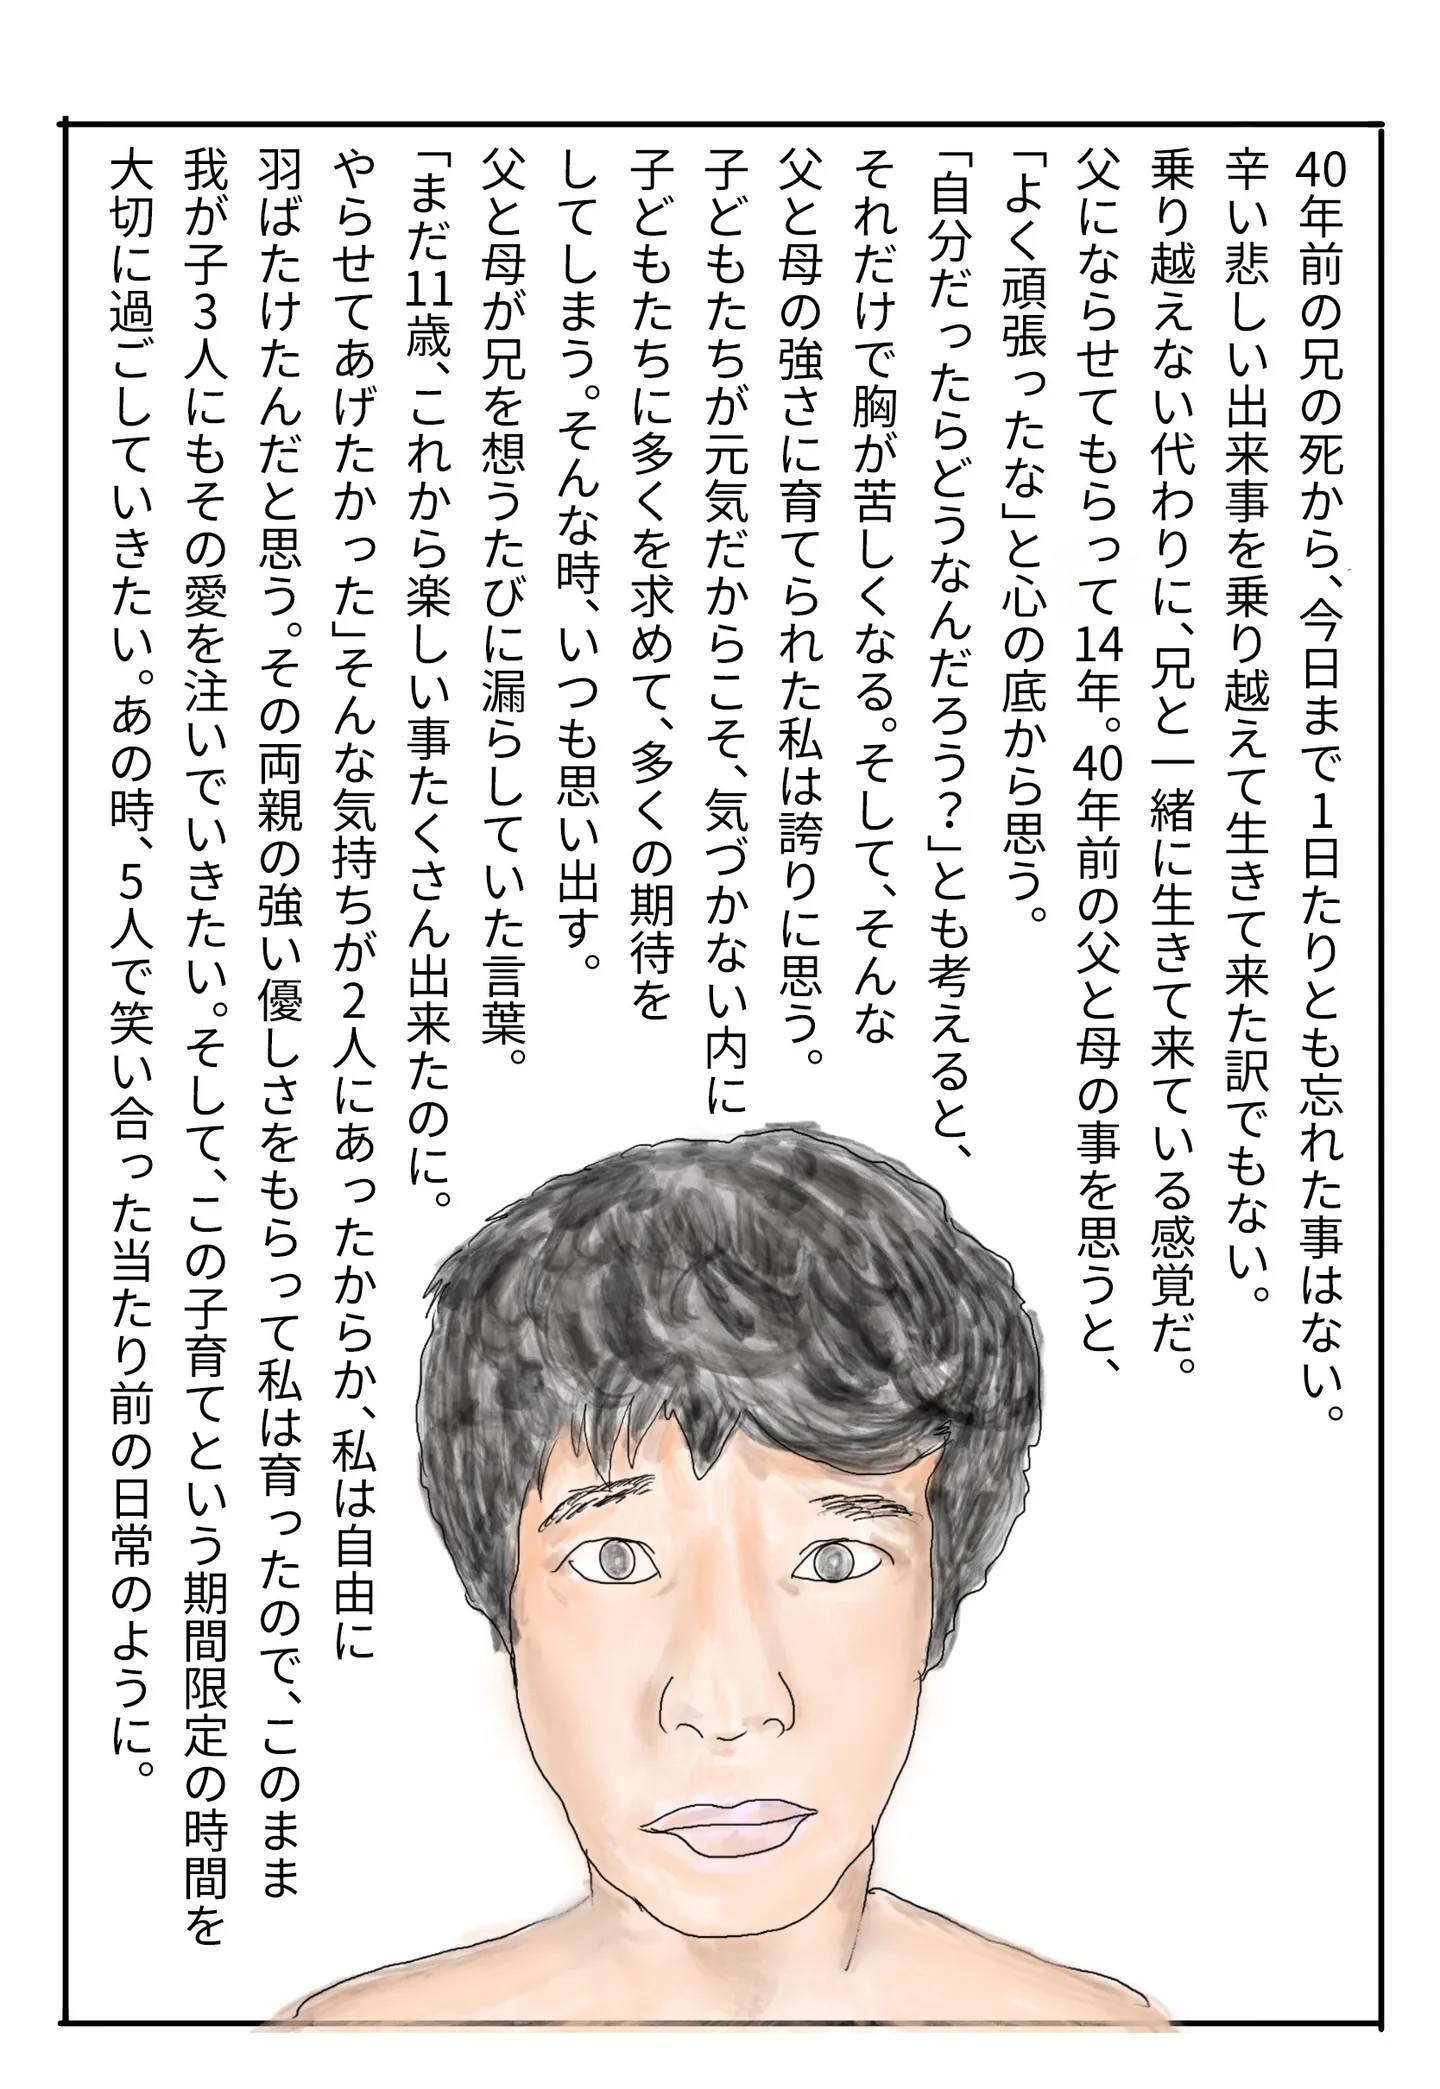 40年前の兄の死から、今日まで1日たりとも忘れた事はない。
辛い悲しい出来事を乗り越えて生きて来た訳でもない。
乗り越えない代わりに、兄と一緒に生きて来ている感覚だ。
父にならせてもらって14年。40年前の父と母の事を思うと、
「よく頑張ったな」と心の底から思う。
「自分だったらどうなんだろう?」とも考えると、
それだけで胸が苦しくなる。そして、そんな
父と母の強さに育てられた私は誇りに思う。
子どもたちが元気だからこそ、気づかない内に
子どもたちに多くを求めて、多くの期待を
してしまう。そんな時、いつも思い出す。
父と母が兄を想うたびに漏らしていた言葉。
「まだ11歳、これから楽しい事たくさん出来たのに。
やらせてあげたかった」そんな気持ちが2人にあったからか、私は自由に
羽ばたけたんだと思う。その両親の強い優しさをもらって私は育ったので、このまま
我が子3人にもその愛を注いでいきたい。そして、この子育てという期間限定の時間を
大切に過ごしていきたい。あの時、5人で笑い合った当たり前の日常のように。